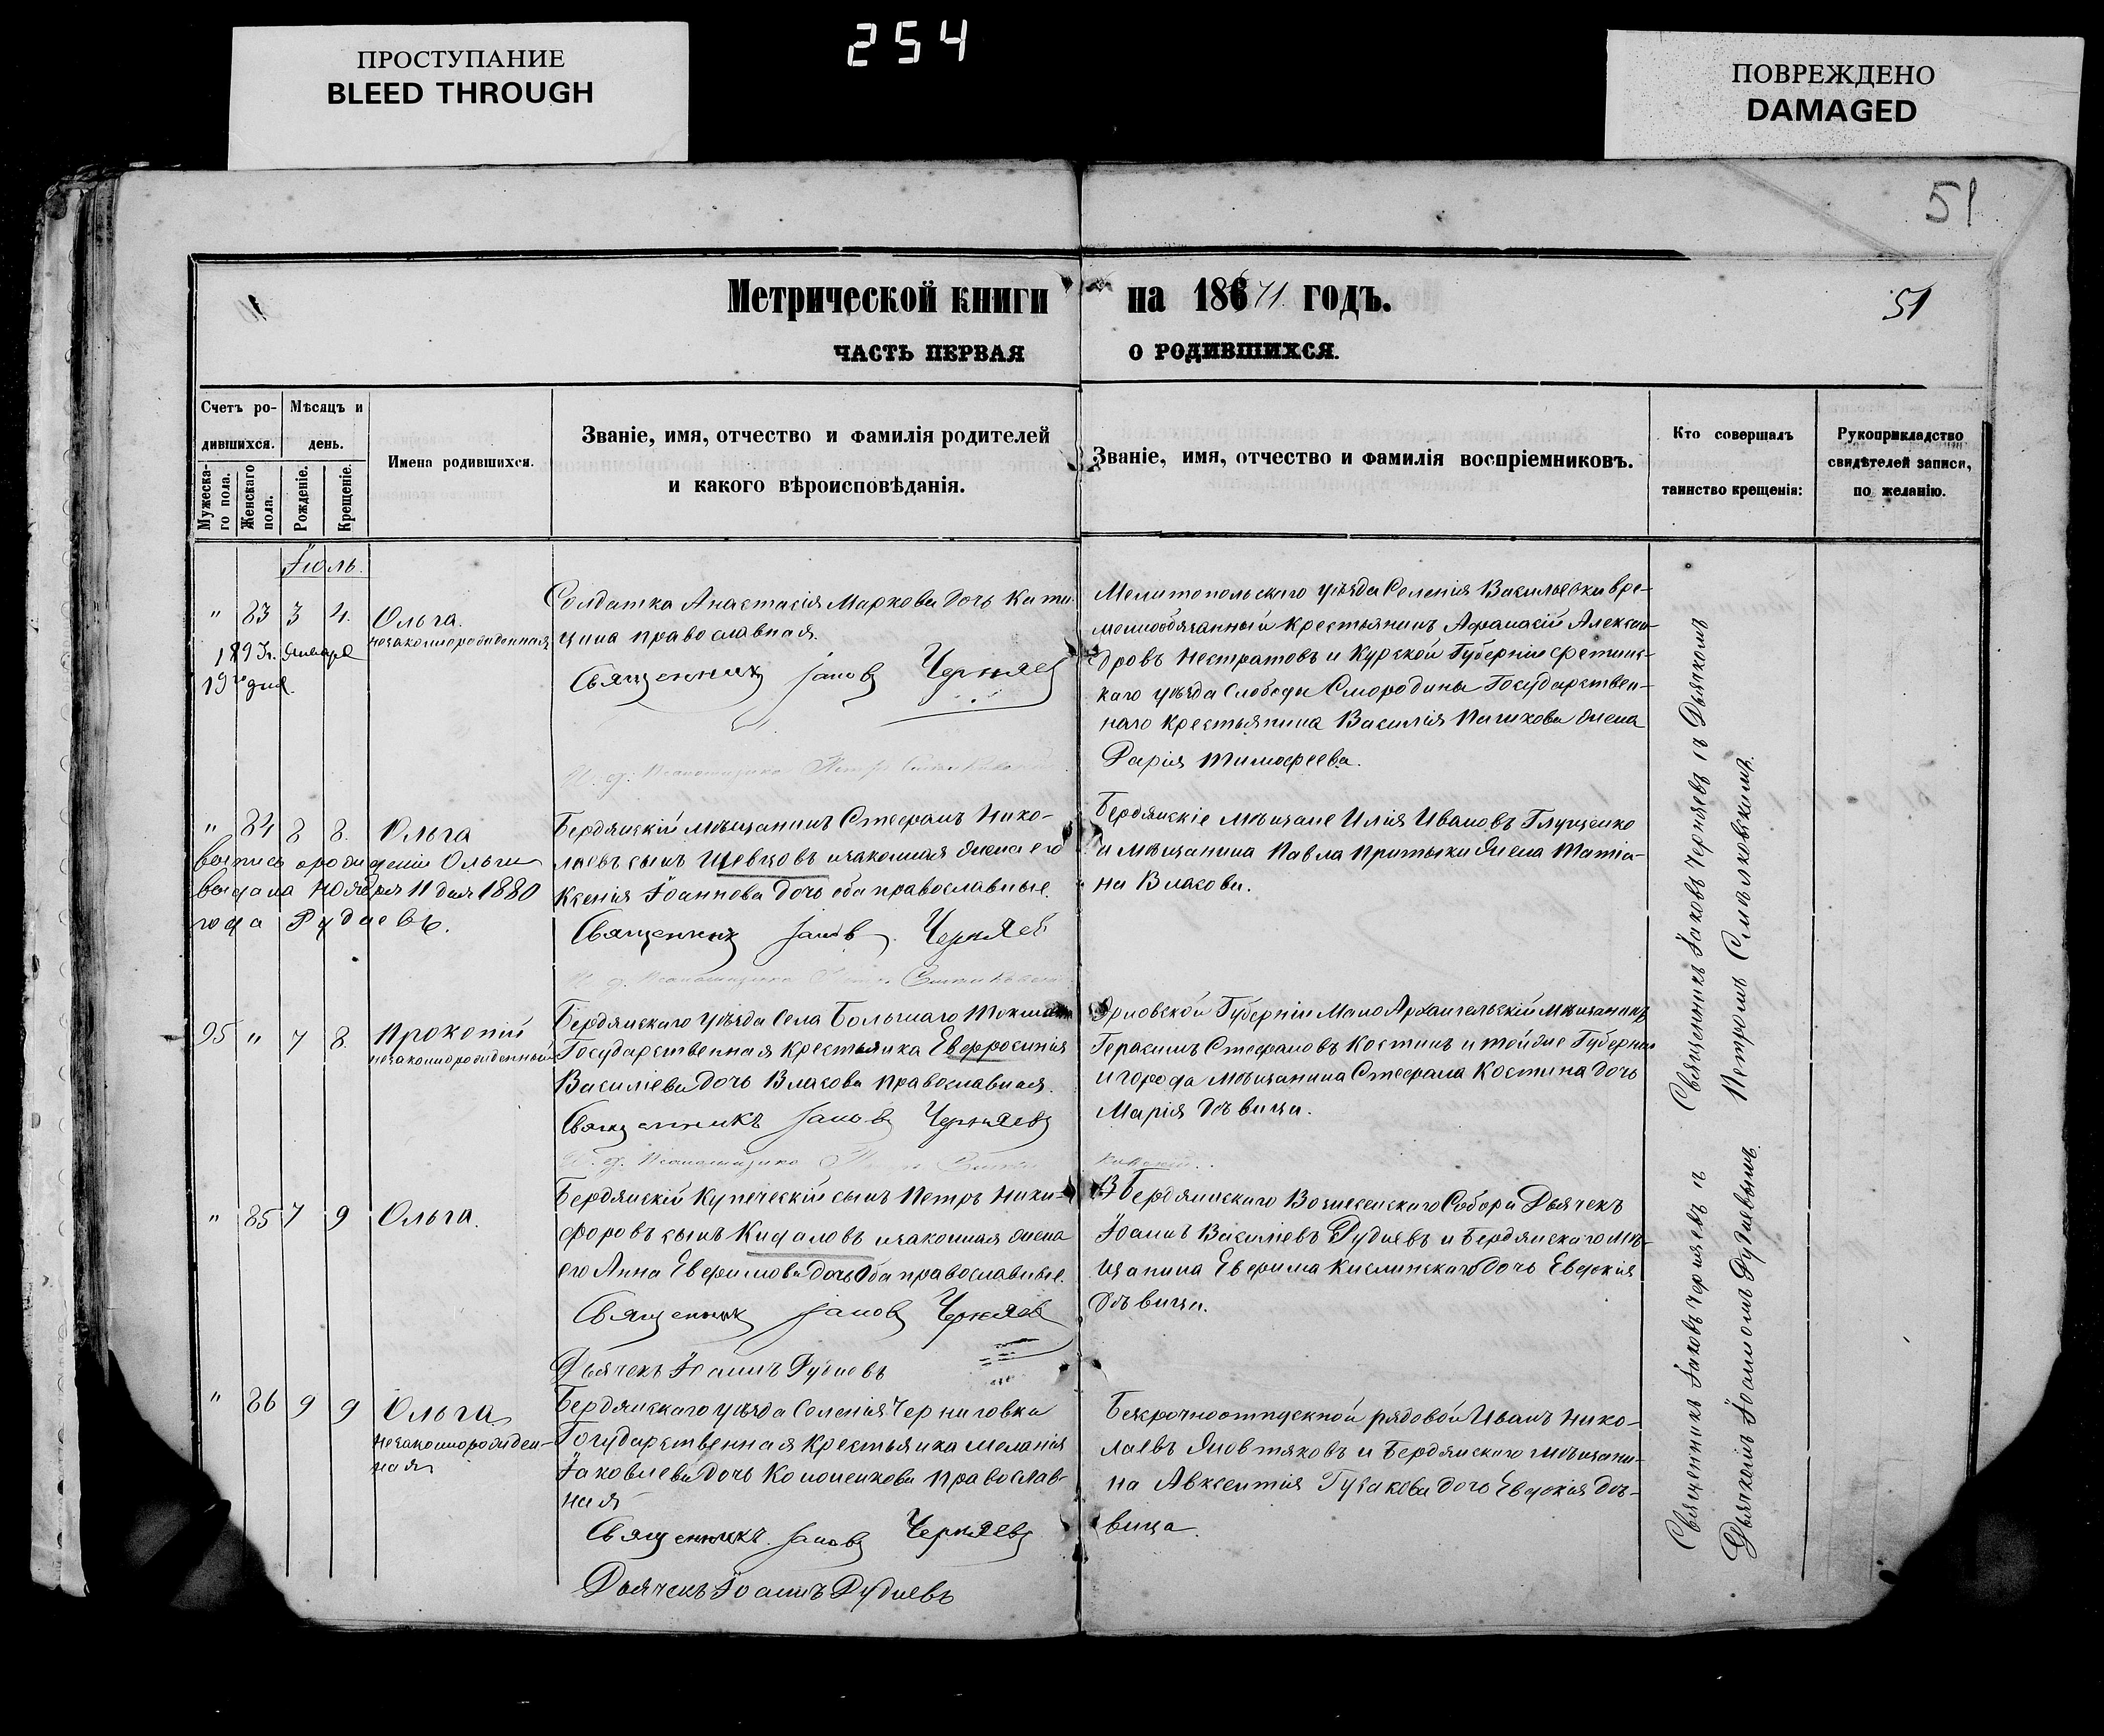 ПРОСТУПАНИЕ
BLEED THROUGH
254
ПОВРЕЖДЕНО
DAMAGED
51
Метрической книги на 1871 годъ.
51
ЧАСТЬ ПЕРВАЯ О РОДИВШИХСЯ.
Счетъ ро-
дившихся.
Мужеска-
го пола.
Женскаго
пола.
Мѣсяцъ и
день.
Рожденіе.
Крещеніе.
Имена родившихся.
Званіе, имя, отчество и фамилія родителей
и какого вѣроисповѣданія.
Званіе, имя, отчество и фамилія воспріемниковъ.
Кто совершалъ
таинство крещенія:
Рукоприкладство
свидѣтелей записи,
по желанію.
Іюль.
" 83 3 4. Ольга.
незаконнорожденная
1893г. Января
19го дня.
Солдатка Анастасія Маркова дочь
православная.
Священникъ Іаковъ Черняевъ
Мелитопольскаго уѣзда Селенія Васильевки вре-
меннообязанный крестьянинъ Афанасій Алексан-
дровъ Нестратовъ и Курской Губерніи
каго уѣзда Слободы Смородины Государствен-
наго крестьянина Василія Пашкова жена
Дарія Тимофеева.
" 84 8 8. Ольга
выпись о рожденіи Ольги
выдана Ноября 11 дня 1880
года Рудневъ.
Бердянскій мѣщанинъ Стефанъ Нико-
лаевъ сынъ Шевцовъ изаконная жена его
Ксенія Іоаннова дочь оба православные.
Священникъ Іаковъ Черняевъ
Бердянскіе мѣщане Илія Ивановъ Глущенко
и мѣщанина Павла Притыки жена Татіа-
на Власова.
95 " 7 8. Прокопій
незаконнорожденный
Бердянскаго уѣзда Села Большаго Токмака
Государственная крестьянка Евфросинія
Василіева дочь Власова православная.
Священникъ Іаковъ Черняевъ
И. д. Псаломщика
Орловской Губерніи Мало Архангельскій мѣщанинъ
Герасимъ Стефановъ Костинъ и тойже Губерніи
и города мѣщанина Стефана Костина дочь
Марія дѣвица.
" 85 7 9 Ольга.
Бердянскій Купеческій сынъ Петръ Ники-
форовъ сынъ Кидаловъ изаконная жена
его Анна Евфимова дочь Оба православные.
Священникъ Іаковъ Черняевъ
Дьячекъ Іоаннъ Рудневъ
Бердянскаго Вознесенскаго Собора Дьячекъ
Іоаннъ Василіевъ Рудневъ и Бердянскаго мѣ-
щанина Евфима Кислинскаго дочь Евдокія
дѣвица.
" 86 9 9 Ольга
незаконнорожден-
ная
Бердянскаго уѣзда Селенія Черниговки
Государственная крестьянка Меланія
Іаковлева дочь Кононенкова православ-
ная
Священникъ Іаковъ Черняевъ
Дьячекъ Іоаннъ Рудневъ
Безсрочноотпускной рядовой Иванъ Нико-
лаевъ Жовтяковъ и Бердянскаго мѣщани-
на Авксентія Гусакова дочь Евдокія дѣ-
вица.
Священникъ Іаковъ Черняевъ съ Дьячкомъ
Петромъ
Священникъ Іаковъ Черняевъ съ
Дьячкомъ Іоанномъ Рудневымъ.